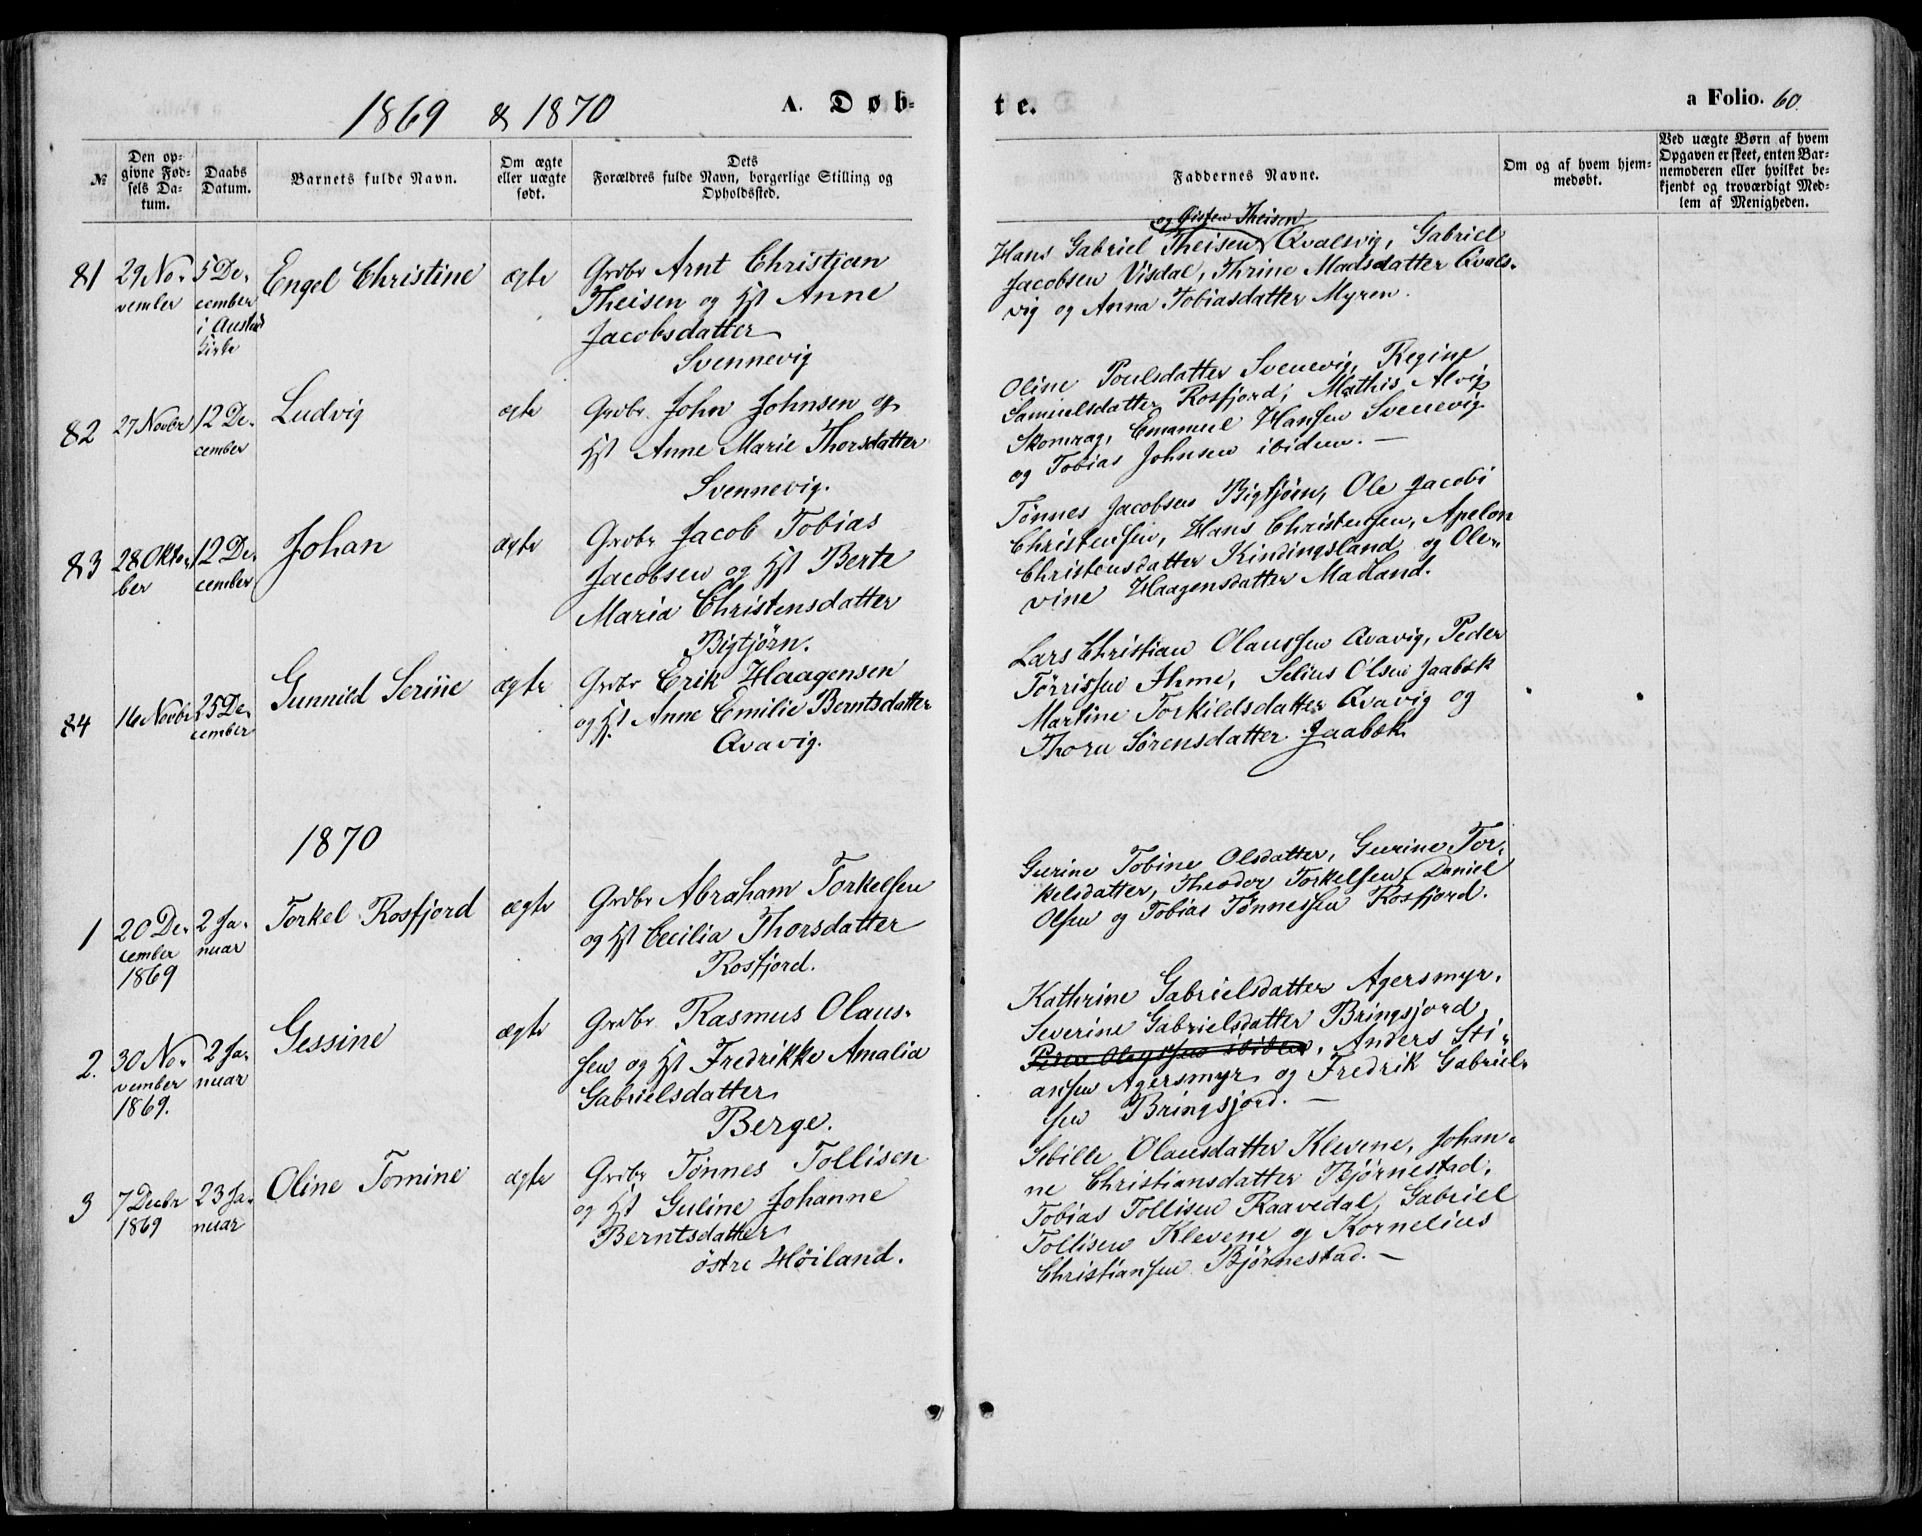 1869 & 1870
A. Døb-
te.
a Folio. 60.
№
Den op-
givne Fød-
sels Da-
tum.
Daabs
Datum.
Barnets fulde Navn.
Om ægte
eller uægte
født.
Dets
Forældres fulde Navn, borgerlige Stilling og
Opholdssted.
Faddernes Navne.
Om og af hvem hjem-
medøbt.
Ved uægte Børn af hvem
Opgaven er skeet, enten Bar-
nemoderen eller hvilket be-
kjendt og troværdigt Med-
lem af Menigheden.
81
29 No-
vember
5 De-
cember
i Austad
Kirke
Engel Christine
ægte
Grdbr Arnt Christian
Theisen og Hst Anne
Jacobsdatter
Svennevig
og Theisen
Hans Gabriel Theisen Qvalsvig, Gabriel
Jacobsen Visdal, Thrine Madsdatter Qvals-
vig og Anna Tobiasdatter Myren.
82
27 Novbr
12 De-
cember
Ludvig
ægte
Grdbr. John Johnsen og
Hst Anne Marie Thorsdatter
Svennevig.
Oline Poulsdatter Svenevig, Regine
Samuelsdatter Rosfjord, Mathis Alvig
Skomrag, Emanuel Hansen Svenevig
og Tobias Johnsen ibidem. —
83
28 Okto-
ber
12 De-
cember
Johan
ægte
Grdbr Jacob Tobias
Jacobsen og Hst Berte
Maria Christensdatter
Bigtjørn.
Tønnes Jacobsen Bigtjørn, Ole Jacobi
Christensen, Hans Christensen, Apelon
Christensdatter Kindingsland og Ole-
vine Haagensdatter Madland.
84
16 Novbr
25 De-
cember
Gunnild Serine
ægte
Grdbr Erik Haagensen
og Hst. Anne Emilie Berntsdatter
Qvavig.
Lars Christian Olaussen Qvavig, Peder
Tørrissen Ihme, Selius Olsen Jaabæk
Martine Torkildsdatter Qvavig og
Thora Sørensdatter Jaabæk
1870
1
20 De-
cember
1869
2 Ja-
nuar
Torkel Rosfjord
ægte
Grdbr Abraham Torkelsen
og Hst Cecilia Thorsdatter
Rosfjord.
Gurine Tobine Olsdatter, Gurine Tor-
kelsdatter, Theodor Torkelsen, Daniel
Olsen og Tobias Tønnessen Rosfjord.
2.
30 No-
vember
1869.
2 Ja-
nuar
Gessine
ægte
Grdbr. Rasmus Olaus-
sen og Hst Fredrikke Amalia
Gabrielsdatter
Berge.
Kathrine Gabrielsdatter Agersmyr,
Severine Gabrielsdatter Bringsjord,
ibidem, Anders Sti-
ansen Agersmyr og Fredrik Gabriel-
sen Bringsjord. —
3
7 Decbr
1869
23 Ja-
nuar
Oline Tomine
ægte
Grdbr Tønnes Tollisen
og Hst Guline Johanne
Berntsdatter
østre Høiland.
Sibille Olausdatter Klevene, Johan-
ne Christiansdatter Bjørnestad,
Tobias Tollisen Raavedal, Gabriel
Tollisen Klevene og Kornelius
Christiansen Bjørnestad. —